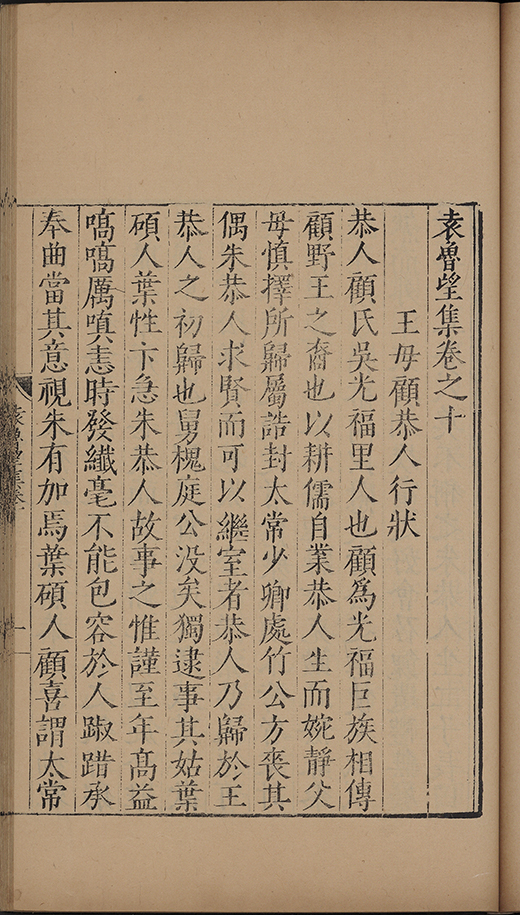 袁魯望集卷之十
王母顧恭人行狀
恭人顧氏吳光福里人也顧爲光福巨族相傳
顧野王之裔也以耕儒自業恭人生而婉靜父
母慎擇所歸屬誥封太常少卿處竹公方喪其
偶朱恭人求賢而可以繼室者恭人乃歸於王
恭人之初歸也舅槐庭公没矣獨逮事其姑葉
碩人葉性卞急朱恭人故事之惟謹至年髙益
嗃嗃厲嗔恚時發纖毫不能包容於人踧踖承
奉曲當其意視朱有加焉葉碩人顧喜謂太常
袁魯望集卷十
一